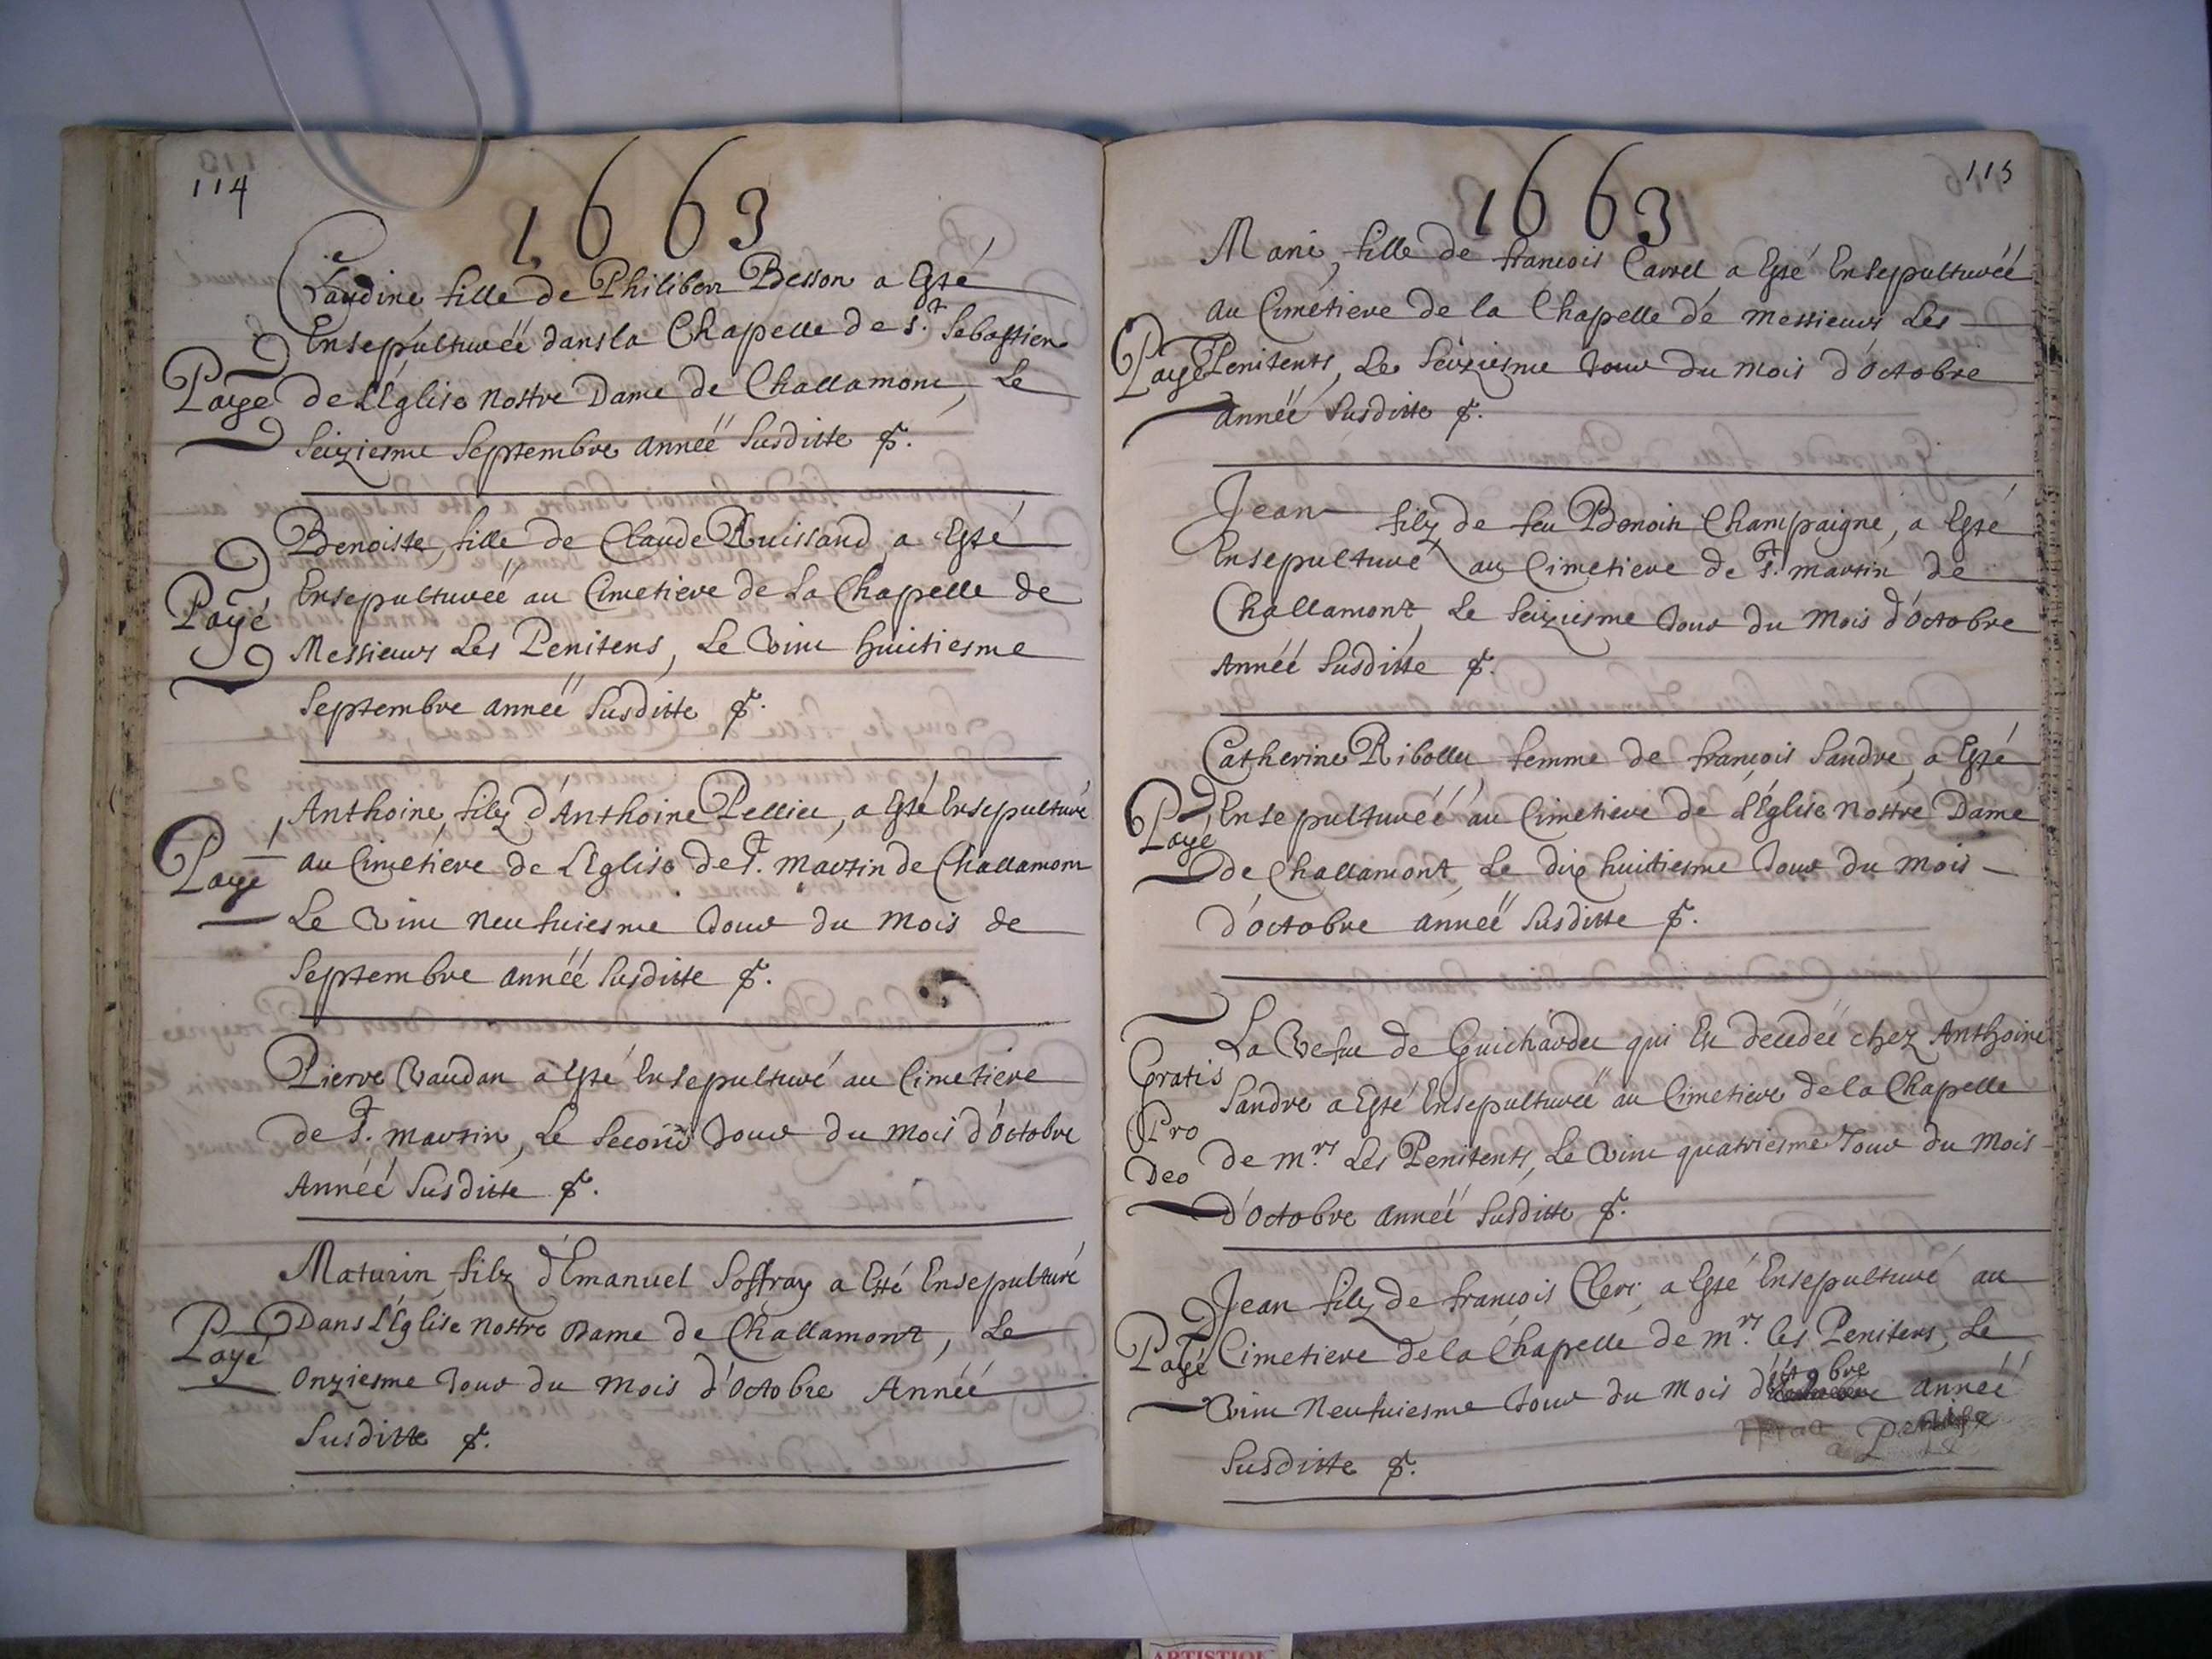 114
1663
Claudine fille de Philibert Besson a Esté
Ensepulturéé dans la Chapelle de St. Sebastien
Payé
de L'Église nostre Dame de Challamont, Le
Seiziesme Septembre année Susditte &.
Benoiste, fille de Claude Ruissand, a Esté
Ensepulturéé au Cimetiere de La Chapelle de
Payé
Messieurs Les Penitens, Le Vint huitiesme
Septembre année Susditte &.
Anthoine, filz d'Anthoine Pellier, a Esté Ensepulturé
Payé
au Cimetiere de L'Eglise de St. Martin de Challamont
Le Vint neufuiesme Jour du Mois de
Septembre année Susditte &.
Pierre Vaudan a Esté Ensepulturé au Cimetiere
de St. Martin, Le Second Jour du Mois d'Octobre
Année Susditte &.
Maturin, filz d'Emanuel Soffray a Esté Ensepulturé
Payé
Dans L'Église nostre Dame de Challamont, Le
Onziesme Jour du Mois d'Octobre Année
Susditte &.
115
1663
Marie, fille de francois Carrel a Esté Ensepulturéé
au Cimetiere de la Chapelle de Messieurs Les
Payé
Penitents, Le Seiziesme Jour du Mois d'Octobre
année Susditte &.
Jean filz de feu Benoit Champaigne, a Esté
Ensepulturé au Cimetiere de St. Martin de
Challamont, Le Seiziesme Jour du Mois d'Octobre
Année Susditte &.
Catherine Ribollet femme de francois Sandre, a Esté
Payé
Ensepulturéé au Cimetiere de L'Église nostre Dame
de Challamont, Le dix huitiesme Jour du Mois
d'Octobre année Susditte &.
La Vefue de Guichardet qui Est decedéé chez Anthoine
Gratis
Sandre a Esté Ensepulturéé au Cimetiere de la Chapelle
Pro
Deo
de Mrs. Les Penitents, Le Vint quatriesme Jour du Mois
d'Octobre année Susditte &.
Jean filz de francois Clerc, a Esté Ensepulturé au
Payé
Cimetiere de la Chapelle de Mrs. Les Penitens, Le
Vint Neufuiesme Jour du Mois d'octobre année
Susditte &.
ARTISTIQUE